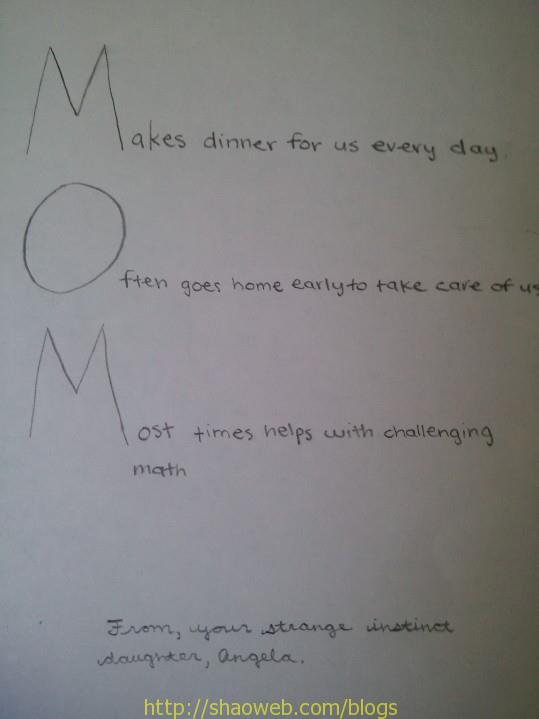 Makes dinner for us every day.
Often goes home early to take care of us
Most times helps with challenging
math
From, your strange instinct
daughter, Angela.
http://shaoweb.com/blogs